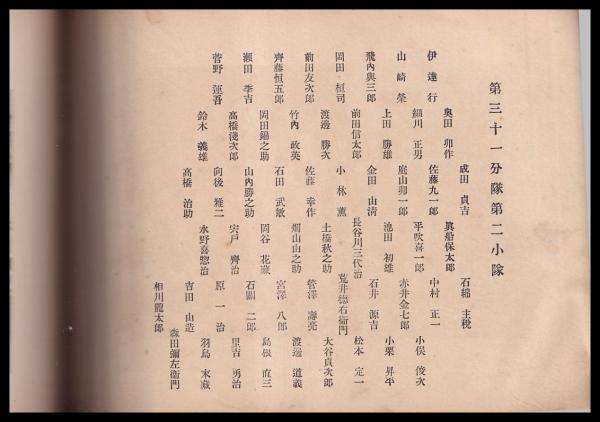 第三十一分隊第二小隊
成田貞吉 石綿主税
奧田卯作 眞船保太郎
伊達行 佐藤九一郎 中村正一
細川正男 平吹喜一郎 小俣俊次
山崎榮 庭山卯一郎 赤井金七郎
上田勝雄 池田初雄 小栗昇平
飛內與三郎 金田由淸 石井源吉
前田信太郎 長谷川三代治 松本定一
岡田恒司 小林薰 荒井德右衞門
渡邊勝次 土橋秋之助 大谷貞次郎
前田友次郎 佐藤幸作 管澤壽亮
竹內政英 畑山由之助 渡邊道義
齊藤恒五郎 石田武敏 宮澤八郎
岡田錦之助 岡谷花藏 島根直三
瀨田季吉 山內勝之助 石關二郎
高橋淺次郎 宍戶齊治 里吉勇治
菅野運吾 向後雅二 原一治
鈴木義雄 水野喜惣治 羽鳥末藏
高橋治助 吉田由造
森田彌左衞門
相川龍太郎